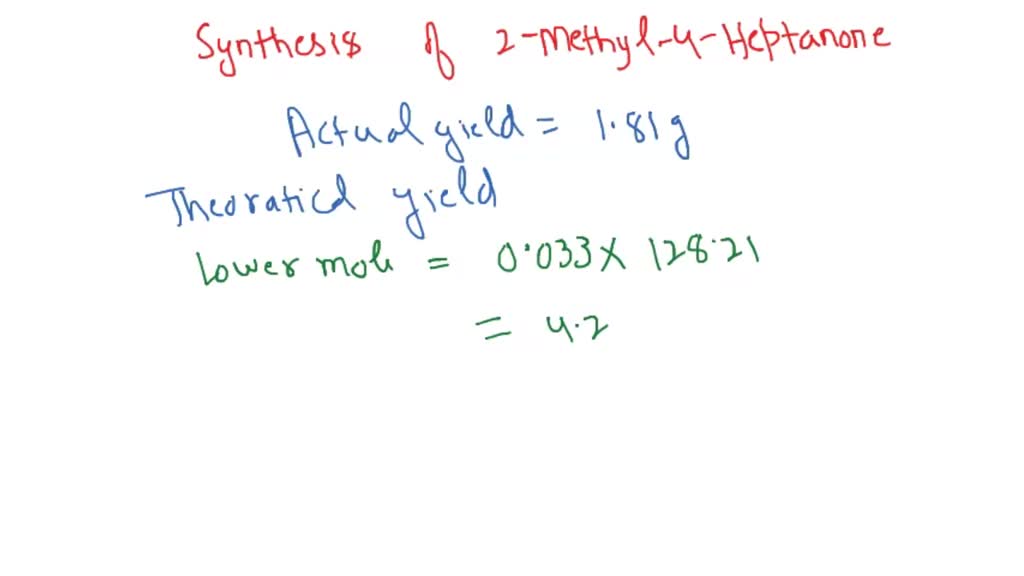 Synthesis of 2-Methyl-4-Heptanone
Actual yield = 1.81g
Theoraticd yield
Lower mole = 0.033 × 128.21
= 4.2